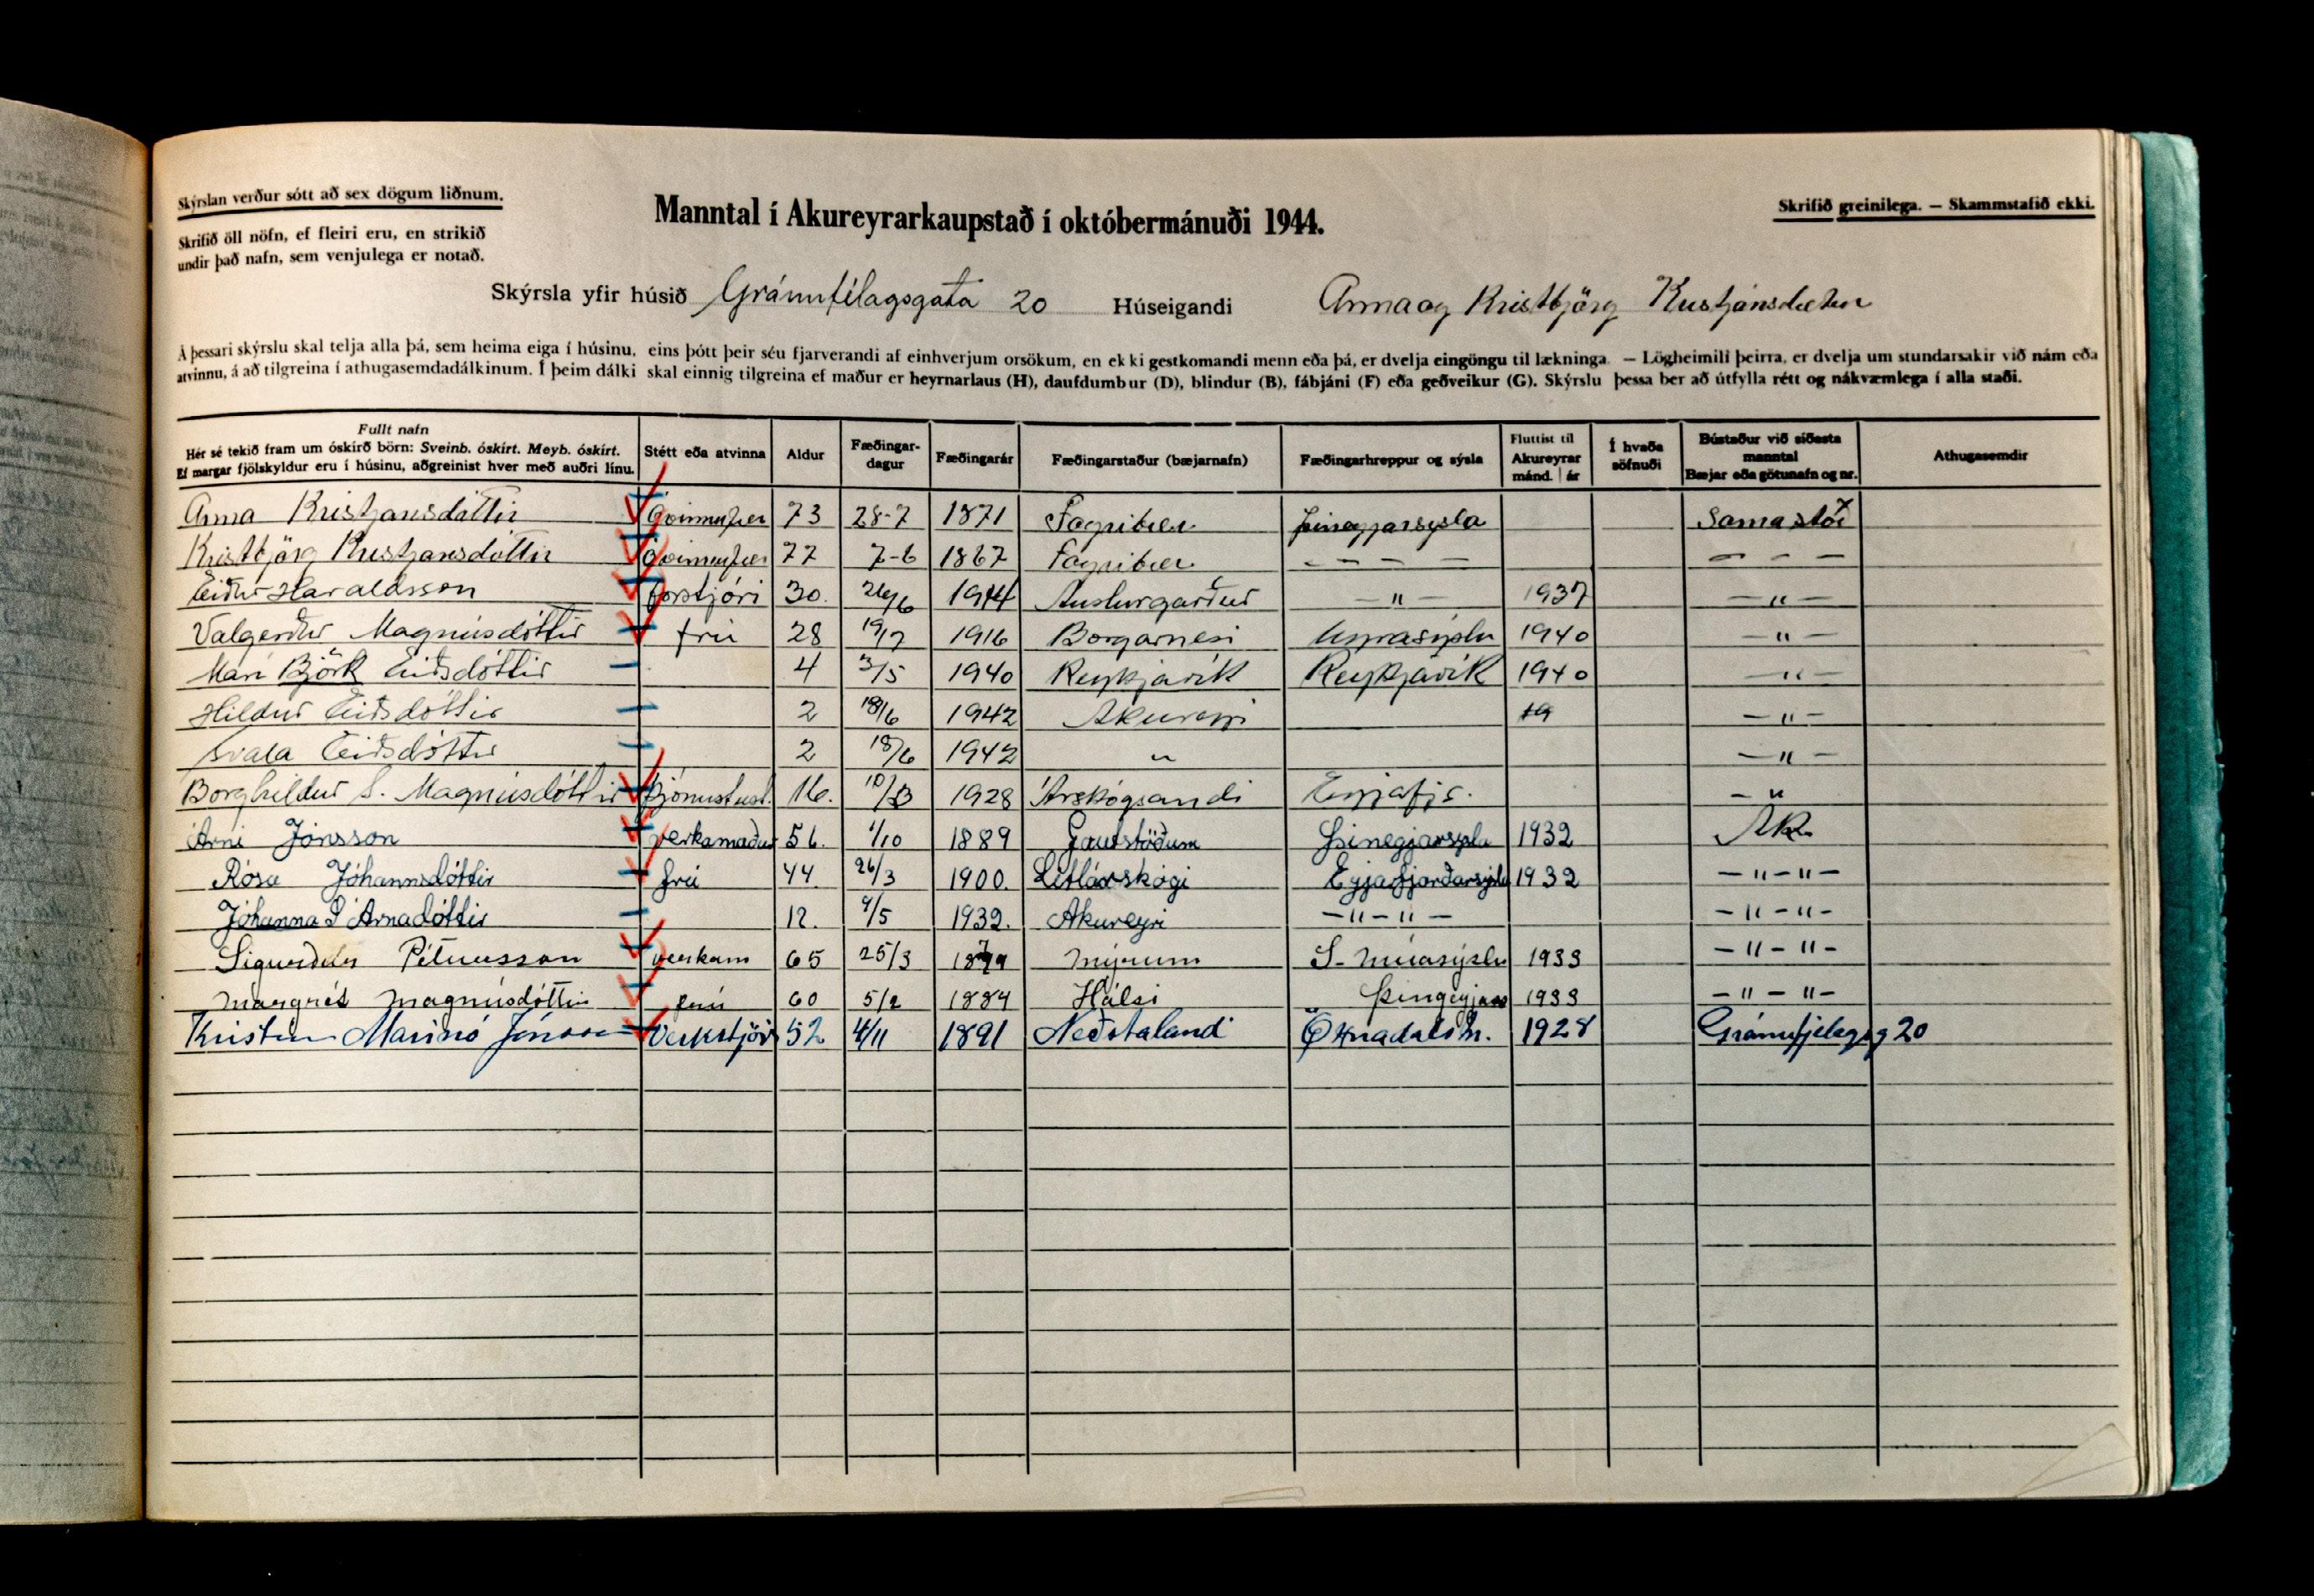 Skýrslan verður sótt að sex dögum liðnum.
Skrifið öll nöfn, ef fleiri eru, en strikið
undir það nafn, sem venjulega er notað.
Manntal í Akureyrarkaupstað í októbermánuði 1944.
Skrifið greinilega. — Skammstafið ekki.
Skýrsla yfir húsið Gránufélagsgata 20 Húseigandi Anna og Kristbjörg Kristjánsdætur
Á þessari skýrslu skal telja alla þá, sem heima eiga í húsinu, eins þótt þeir séu fjarverandi af einhverjum orsökum, en ekki gestkomandi menn eða þá, er dvelja eingöngu til lækninga. — Lögheimili þeirra, er dvelja um stundarsakir við nám eða
atvinnu, á að tilgreina í athugasemdadálkinum. Í þeim dálki skal einnig tilgreina ef maður er heyrnarlaus (H), daufdumbur (D), blindur (B), fábjáni (F) eða geðveikur (G). Skýrslu þessa ber að útfylla rétt og nákvæmlega í alla staði.
Fullt nafn
Hér sé tekið fram um óskírð börn: Sveinb. óskírt. Meyb. óskírt.
Ef margar fjölskyldur eru í húsinu, aðgreinist hver með auðri línu.
Stétt eða atvinna
Aldur
Fæðingar-
dagur
Fæðingarár
Fæðingarstaður (bæjarnafn)
Fæðingarhreppur og sýsla
Fluttist til
Akureyrar
mánd. | ár
Í hvaða
söfnuði
Bústaður við síðasta
manntal
Bæjar eða götunafn og nr.
Athugasemdir
Anna Kristjansdóttir 73 28-7 1871 Fagribær Þingeyjarsysla Sama stað
Kristbjörg Kristjansdóttir 77 7-6 1867 Fagribær - - - - - - -
Eiður Haraldsson forstjóri 30. 26/6 Austurgarður — " — 1937 — " —
Valgerður Magnúsdóttir frú 28 19/7 1916 Borgarnesi Myrasýslu 1940 — " —
Mari Björk Eiðsdóttir 4 3/5 1940 Reykjavík Reykjavík 1940 — " —
Hildur Eiðsdóttir 2 18/6 1942 Akureyri 19 — " —
Svala Eiðsdóttir 2 18/6 1942 " — " —
Borghildur S. Magnúsdóttir Þjónustust. 16. 1928 Árskógsandi Eyjafjs. — "
Árni Jónsson verkamaður 56. 1/10 1889 Gautstöðum Þinegjarsyslu 1932 Ak
Rósa Jóhannsdóttir frú 44. 26/3 1900. Litlaárskógi Eyjafjarðarsýslu 1932 — " — " —
Jóhanna S Arnadóttir 12. 9/5 1932. Akureyri — " — " — — " — " —
Sigurður Pétursson verkam 65 25/3 Mýrum S-Múlasýslu 1933 — " — " —
Margrét Magnúsdóttir frú 60 5/2 1884 Hálsi 1933 — " — " —
Kristinn Marinó Jónsson Verkstjóri 52 4/11 1891 Neðstalandi Öxnadalshr. 1928 Gránufjelagsg 20